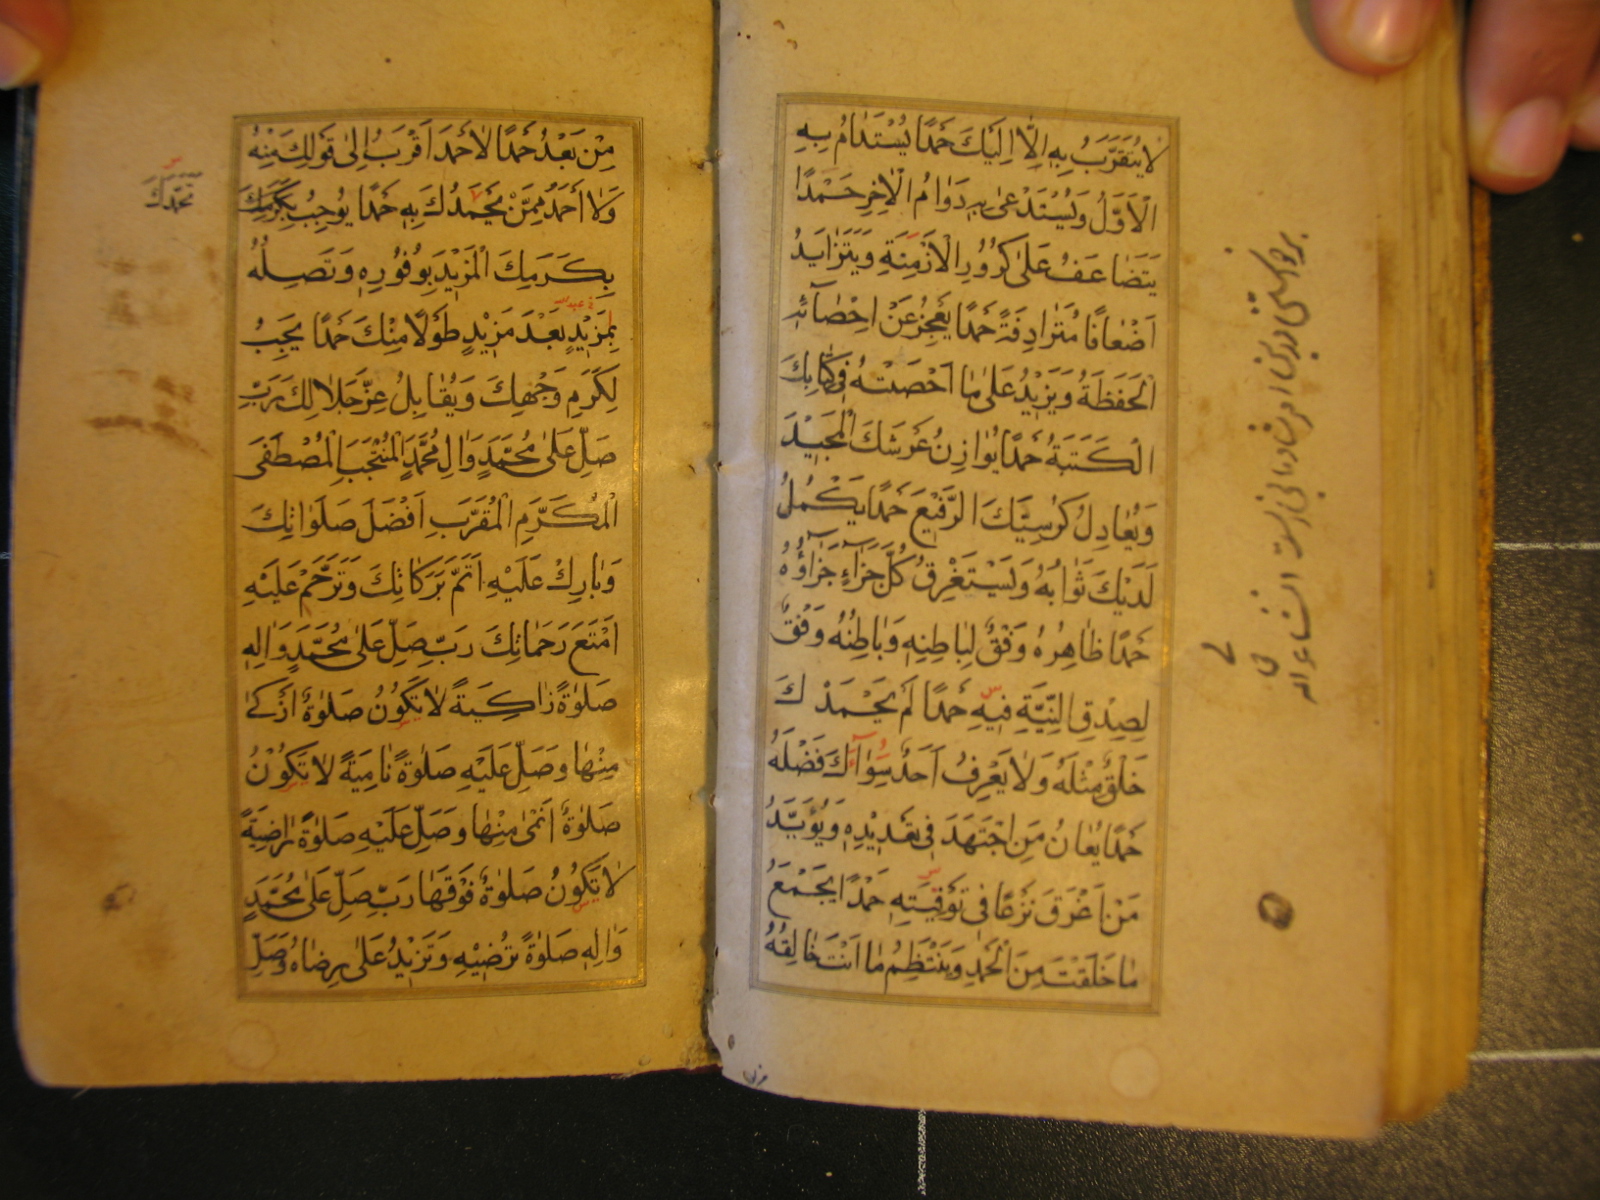 لَا يُتَقَرَّبُ بِهِ اِلَّا اِلَيْكَ حَمْدًا يُسْتَدَامُ بِهِ
الْاَوَّلُ وَيُسْتَدْعٰى بِهِ دَوَامُ الْاٰخِرِ حَمْدًا
يَتَضَاعَفُ عَلٰى كُرُورِ الْاَزْمِنَةِ وَيَتَزَايَدُ
اَضْعَافًا مُتَرَادِفَةً حَمْدًا يَعْجِزُ عَنْ اِحْصَآئِهِ
الْحَفَظَةُ وَيَزِيْدُ عَلٰى مَا اَحْصَتْهُ فِى كِتَابِكَ
الْكَتَبَةُ حَمْدًا يُوَازِنُ عَرْشَكَ الْمَجِيْدَ
وَيُعَادِلُ كُرْسِيَّكَ الرَّفِيْعَ حَمْدًا يَكْمُلُ
لَدَيْكَ ثَوَابُهُ وَيَسْتَغْرِقُ كُلَّ جَزَآءٍ جَزَآؤُهُ
حَمْدًا ظَاهِرُهُ وَفْقٌ لِبَاطِنِهِ وَبَاطِنُهُ وَفْقٌ
لِصِدْقِ النِّيَّةِ فِيْهِ حَمْدًا لَمْ يَحْمَدْكَ
خَلْقٌ مِثْلَهُ وَلَا يَعْرِفُ اَحَدٌ سِوَاكَ فَضْلَهُ
حَمْدًا يُعَانُ مَنِ اجْتَهَدَ فِى تَعْدِيْدِهِ وَيُؤَيَّدُ
مَنْ اَغْرَقَ نَزْعًا فِى تَوْفِيَتِهِ حَمْدًا يَجْمَعُ
مَا خَلَقْتَ مِنَ الْحَمْدِ وَيَنْتَظِمُ مَا اَنْتَ خَالِقُهُ
من
مِنْ بَعْدُ حَمْدًا لَا حَمْدَ اَقْرَبُ اِلٰى قَوْلِكَ مِنْهُ
وَلَا اَحْمَدُ مِمَّنْ يَحْمَدُكَ بِهِ حَمْدًا يُوجِبُ بِكَرَمِكَ
نَحْمَدُكَ
بِكَرَمِكَ الْمَزِيْدَ بِوُفُوْرِهِ وَتَصِلُهُ
بِمَزِيْدٍ بَعْدَ مَزِيْدٍ طَوْلًا مِنْكَ حَمْدًا يَجِبُ
لِكَرَمِ وَجْهِكَ وَيُقَابِلُ عِزَّ جَلَالِكَ رَبِّ
صَلِّ عَلٰى مُحَمَّدٍ وَاٰلِ مُحَمَّدٍ الْمُنْتَجَبِ الْمُصْطَفَى
الْمُكَرَّمِ الْمُقَرَّبِ اَفْضَلَ صَلَوَاتِكَ
وَبَارِكْ عَلَيْهِ اَتَمَّ بَرَكَاتِكَ وَتَرَحَّمْ عَلَيْهِ
اَمْتَعَ رَحَمَاتِكَ رَبِّ صَلِّ عَلٰى مُحَمَّدٍ وَاٰلِهِ
صَلٰوةً زَاكِيَةً لَا تَكُوْنُ صَلٰوةٌ اَزْكٰى
مِنْهَا وَصَلِّ عَلَيْهِ صَلٰوةً نَامِيَةً لَا تَكُوْنُ
صَلٰوةٌ اَنْمٰى مِنْهَا وَصَلِّ عَلَيْهِ صَلٰوةً رَاضِيَةً
لَا تَكُوْنُ صَلٰوةٌ فَوْقَهَا رَبِّ صَلِّ عَلٰى مُحَمَّدٍ
وَاٰلِهِ صَلٰوةً تُرْضِيْهِ وَتَزِيْدُ عَلٰى رِضَاهُ وَصَلِّ